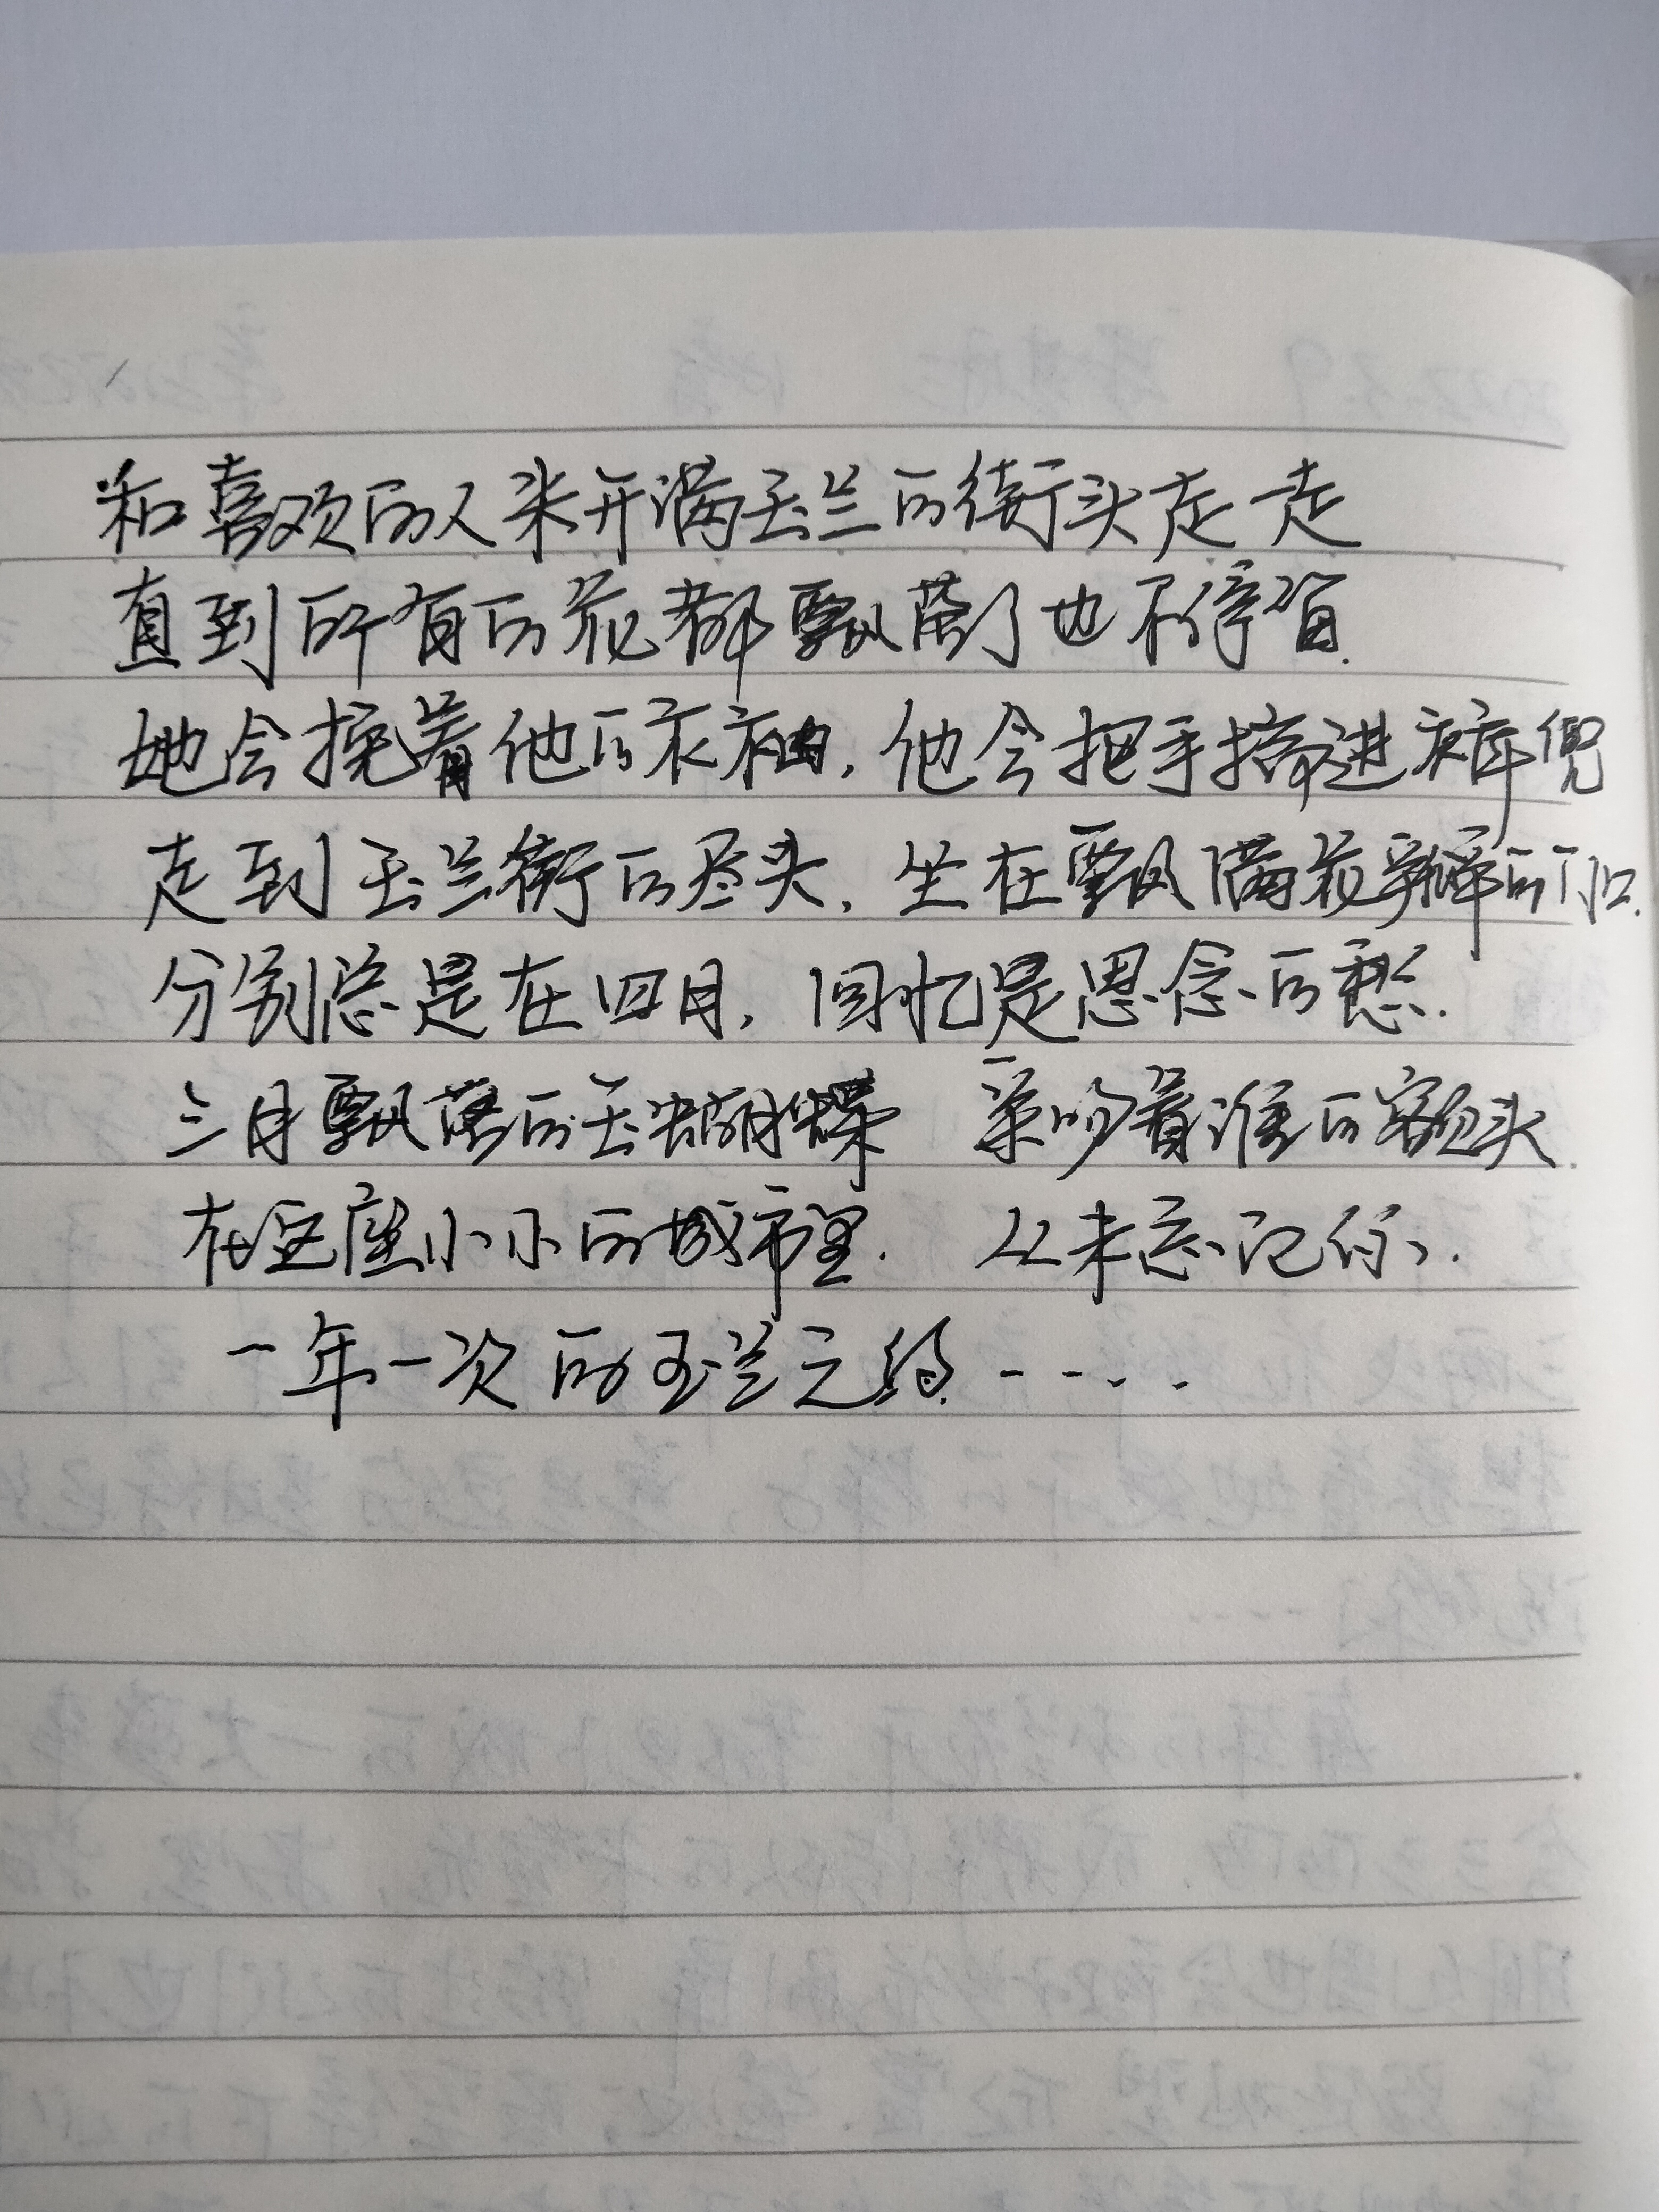 和喜欢的人来开满玉兰的街头走一走
直到所有的花都飘落了也不停留.
她会挽着他的衣袖，他会把手揣进裤兜
走到玉兰街的尽头，坐在飘满花瓣的门口.
分别总是在四月，回忆是思念的愁.
三月飘落的玉蝴蝶 亲吻着谁的额头
在这座小小的城市里. 从未忘记你.
一年一次的玉兰之约.....